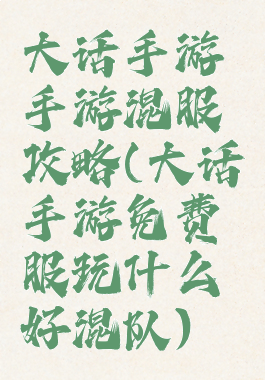 大话手游
手游混服
攻略(大话
手游免费
服玩什么
好混队)